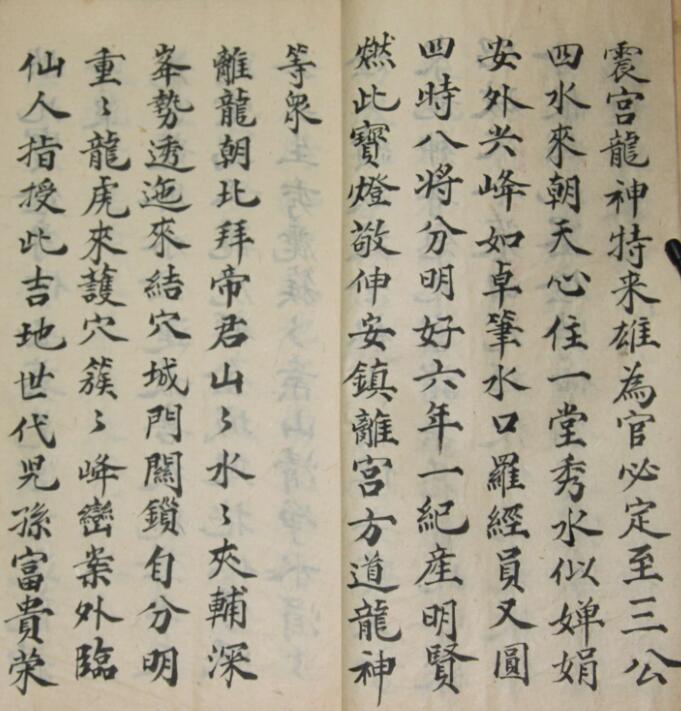 震宫龍神特来雄為官必定至三公
四水來朝天心住一堂秀水似婵娟
安外兴峰如卓筆水口羅經員又圓
四時八將分明好六年一紀産明賢
燃此寶燈敬伸安鎮離宫方道龍神
等衆
離龍朝北拜帝君山〻水〻夾輔深
峯勢透迤來結穴城門關鎖自分明
重〻龍虎來護穴簇〻峰巒案外臨
仙人指授此吉地世代児孫富貴荣